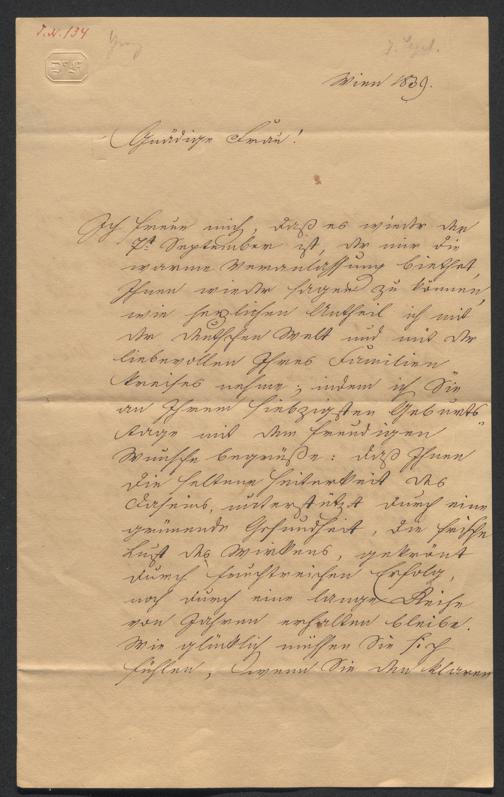 J. N. 134
7. Sept.
Wien 1839.
Gnädige Frau!
Ich freue mich, daß es wieder der
7te September ist, der mir die
warme Veranlassung biethet,
Ihnen wieder sagen zu können,
wie herzlichen Antheil ich mit
der deutschen Welt und mit der
liebevollen Ihres Familien
kreises nehme; indem ich Sie
an Ihrem siebzigsten Geburts
tage mit dem freudigen
Wunsche begrüße: daß Ihnen
die seltene Heiterkeit des
Daseins, unterstützt durch eine
grünende Gesundheit, die frische
Lust des Wirkens, gekrönt
durch fruchtreichen Erfolg,
noch durch eine lange Reihe
von Jahren erhalten bleibe.
Wie glücklich müssen Sie sich
fühlen, wenn Sie den klaren